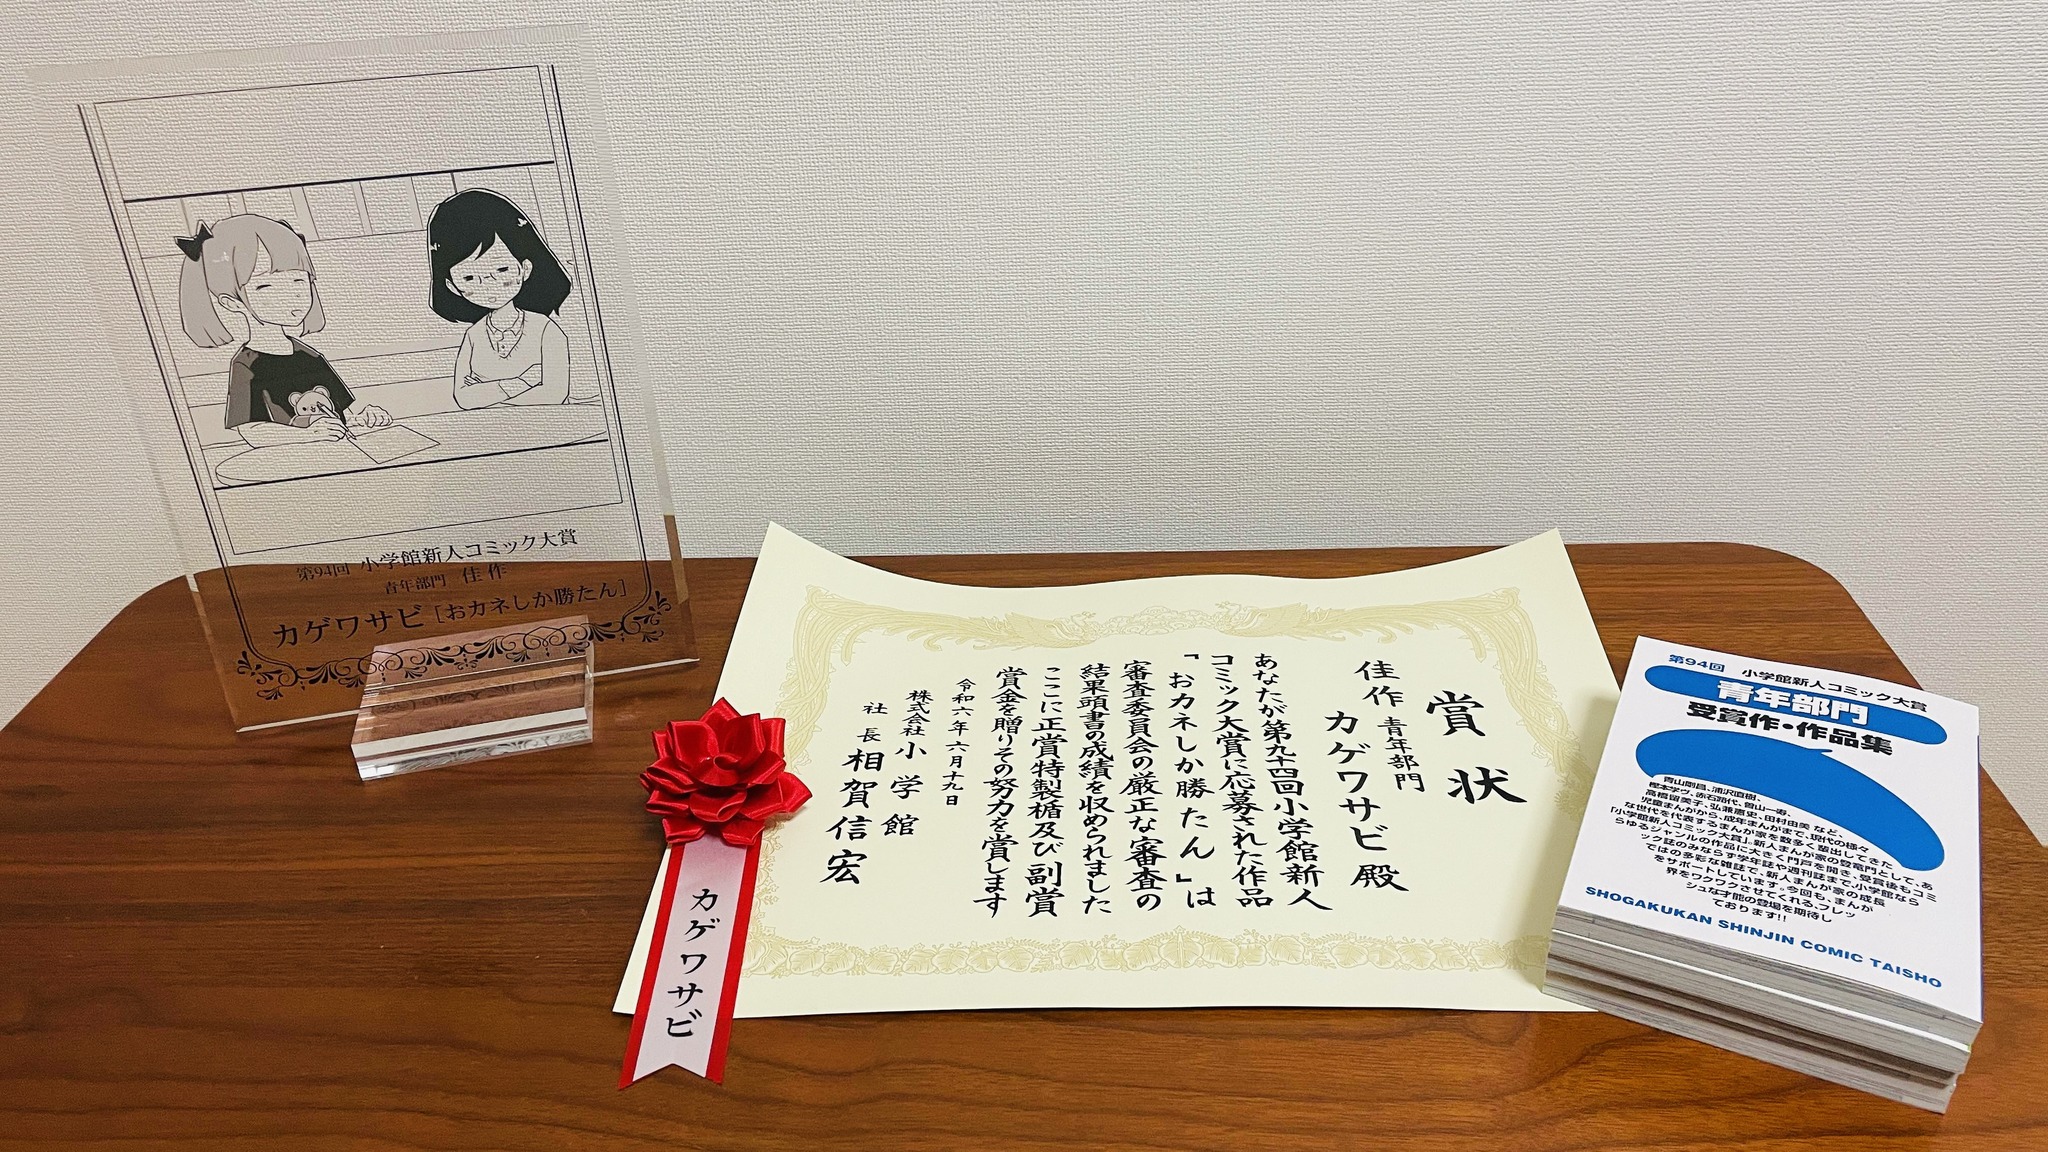 第94回 小学館新人コミック大賞
青年部門 佳作
カゲワサビ［おカネしか勝たん］
カゲワサビ
賞状
佳作 青年部門
カゲワサビ殿
あなたが第九十四回小学館新人
コミック大賞に応募された作品
「おカネしか勝たん」は
審査委員会の厳正な審査の
結果頭書の成績を収められました
ここに正賞特製楯及び副賞
賞金を贈りその努力を賞します
令和六年六月十九日
株式会社小学館
社長 相賀信宏
第94回 小学館新人コミック大賞
青年部門
受賞作・作品集
青山剛昌、浦沢直樹、
樫本学ヴ、赤石路代、曽山一寿、
高橋留美子、弘兼憲史、田村由美 など、
児童まんがから、成年まんがまで、現代の様々
な世代を代表するまんが家を数多く輩出してきた
「小学館新人コミック大賞」。新人まんが家の登竜門として、あ
らゆるジャンルの作品に大きく門戸を開き、受賞後もコミ
ック誌のみならず学年誌や週刊誌まで、小学館なら
ではの多彩な雑誌で、新人まんが家の成長
をサポートしています。今回も、まんが
界をワクワクさせてくれる、フレッ
シュな才能の登場を期待し
ております!!
SHOGAKUKAN SHINJIN COMIC TAISHO